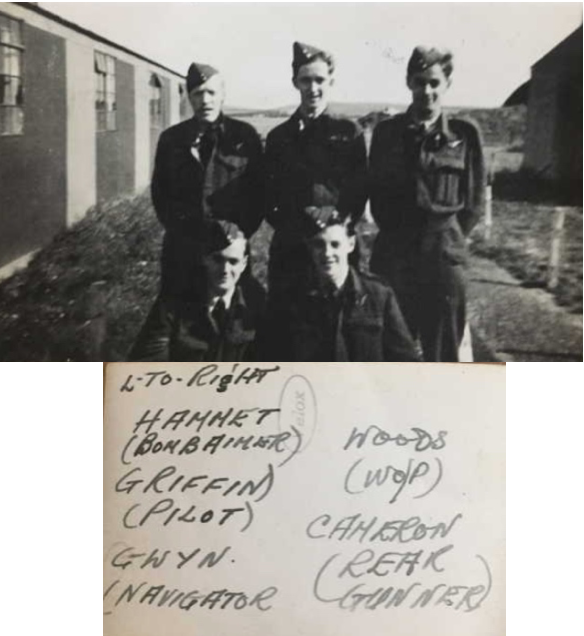 L-TO-RIGHT
HAMMET
(BOMBAIMER)
GRIFFIN)
(PILOT)
GWYN.
(NAVIGATOR
WOODS
(WO/P)
CAMERON
(REAR
GUNNER)
Velox